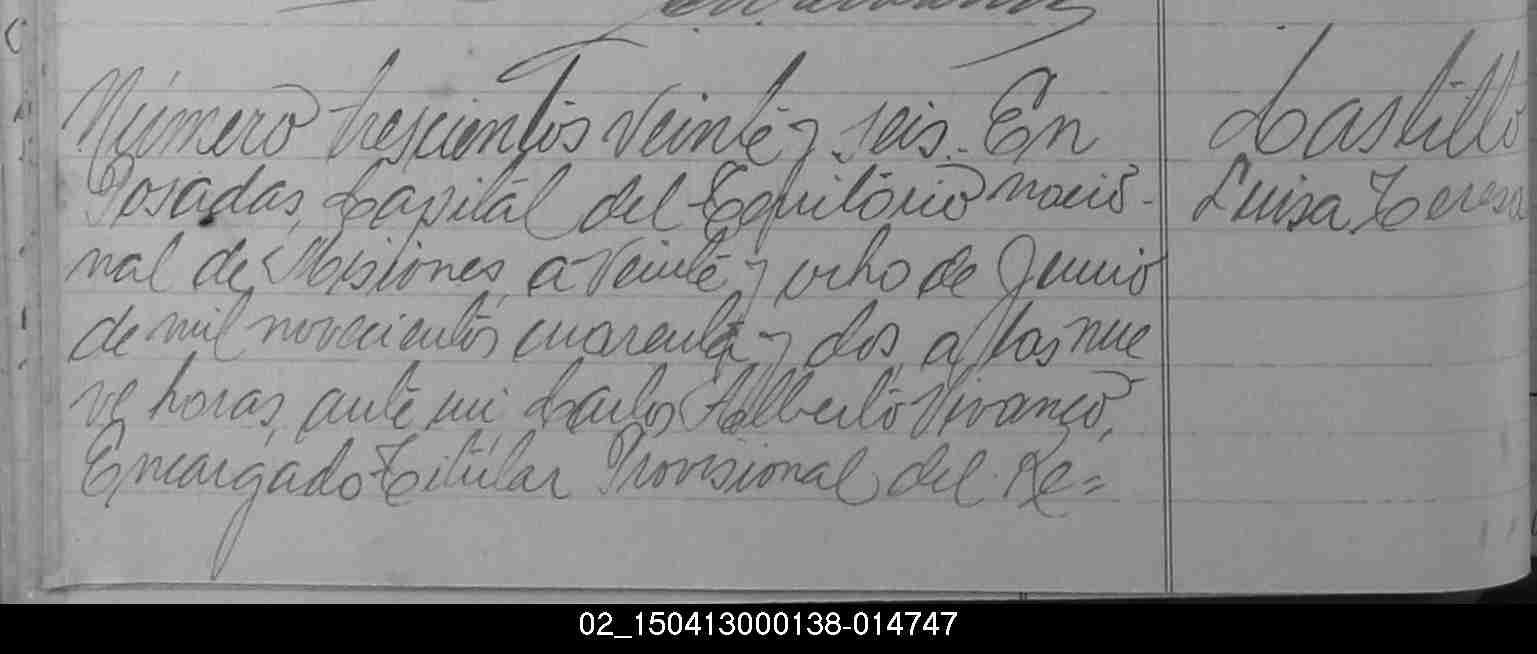 Número trescientos veinte y seis. En
Posadas, Capital del Territorio nacio-
nal de Misiones, a veinte y ocho de Junio
de mil novecientos cuarenta y dos, a las nue
ve horas, ante mi Carlos Alberto Vivanco,
Encargado Titular Provisional del Re=
Castillo
Luisa Teresa
02_150413000138-014747